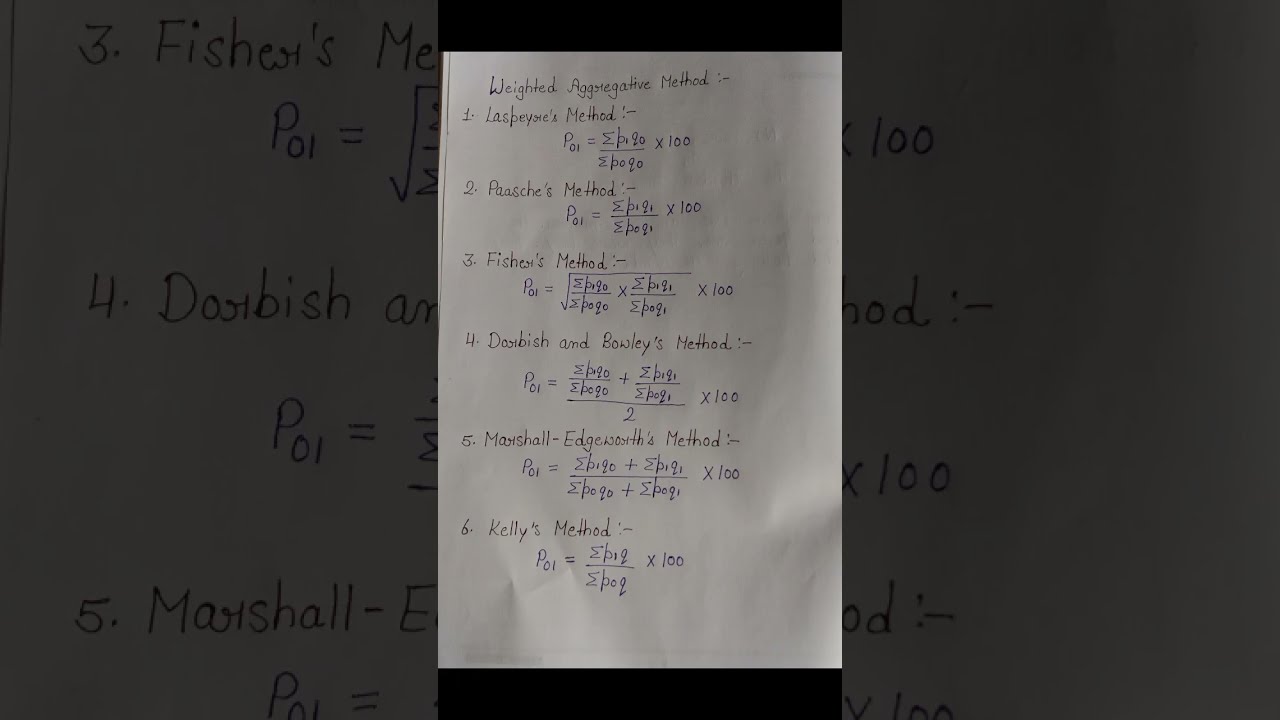 Weighted Aggregative Method :-
1. Laspeyre's Method :-
P₀₁ = Σp₁q₀ / Σp₀q₀ × 100
2. Paasche's Method :-
P₀₁ = Σp₁q₁ / Σp₀q₁ × 100
3. Fisher's Method :-
P₀₁ = √(Σp₁q₀ / Σp₀q₀ × Σp₁q₁ / Σp₀q₁) × 100
4. Dorbish and Bowley's Method :-
P₀₁ = (Σp₁q₀ / Σp₀q₀ + Σp₁q₁ / Σp₀q₁) / 2 × 100
5. Marshall-Edgeworth's Method :-
P₀₁ = (Σp₁q₀ + Σp₁q₁) / (Σp₀q₀ + Σp₀q₁) × 100
6. Kelly's Method :-
P₀₁ = Σp₁q / Σp₀q × 100